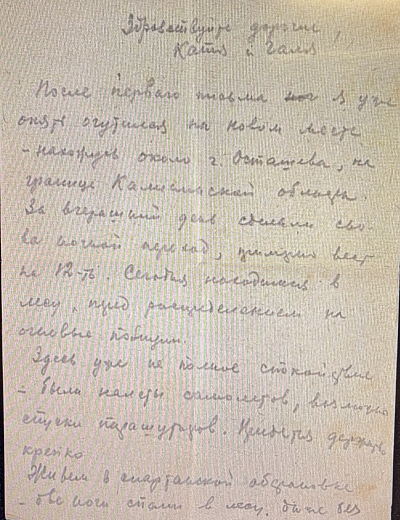 Здравствуйте дорогие,
Катя и Галя
После первого письма я уже
опять очутился на новом месте
- нахожусь около г. Осташева, на
границе Калининской области.
За вчерашний день сделали сно-
ва ночной переход, примерно верст
на 12-ть. Сегодня находимся в
лесу, перед распределением на
огневые позиции.
Здесь уже не полное спокойствие
- были налеты самолетов, возможно
спуски парашутистов. Придется держать
крепко
Живем в спартанской обстановке
- две ночи спали в лесу, были без